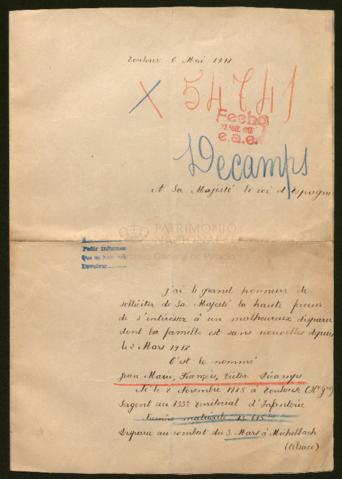 Toulouse 6 Mai 1918
X 54741
Fecha
e.a.e.
Decamps
A Sa Majesté le roi d'Espagne
PATRIMONIO
NACIONAL
General de Palacio
Pedir informes
Devolver
j'ai le grand honneur de
solliciter de Sa Majesté la haute faveur
de s'intéresser à un malheureux disparu
dont la famille est sans nouvelles depuis
le 2 Mars 1918
C'est le nommé
Jean Marie, François, Victor Décamps
Né le 2 Novembre 1885 à Toulouse (Hte Gne)
Sergent au 133e Territorial d'Infanterie
Numéro matricule
Disparu au combat du 3 Mars à Michelbach
(Alsace)